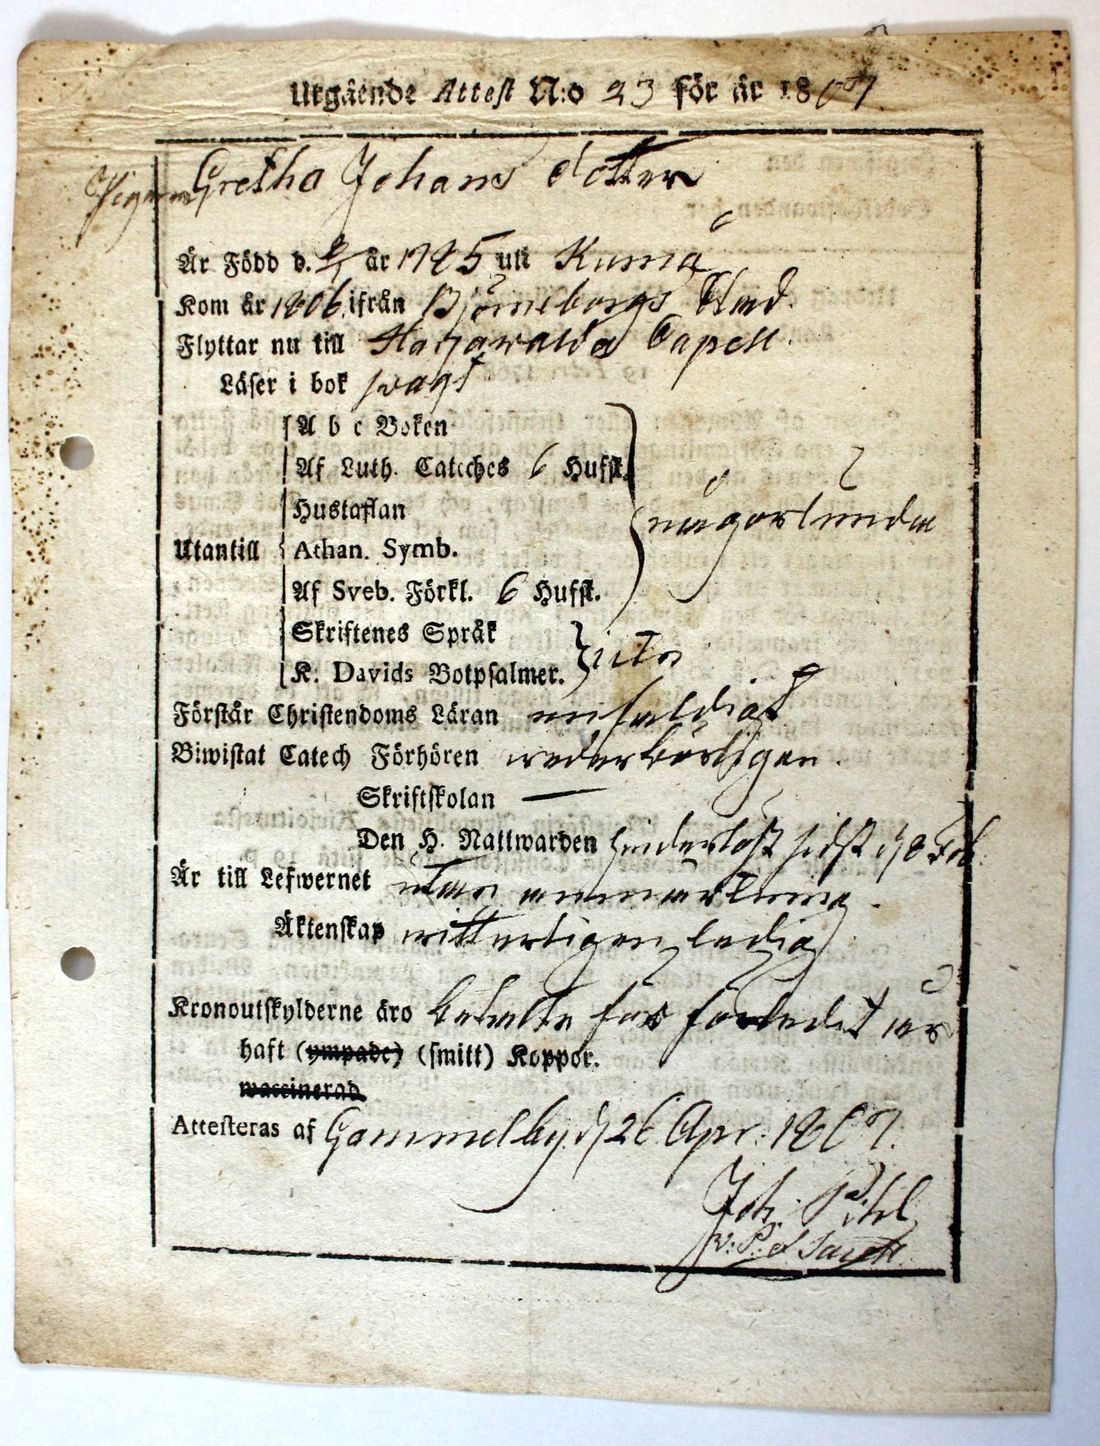 Utgående Attest N:o 23 för år 1807.
Pigan Gretha Johans dotter
Är Född d. år 1785 uti Kumå
Kom år 1806 ifrån Björneborgs Stad.
Flyttar nu till Harjawalda Capell.
Läser i bok swagt
A b c Boken
Af Luth. Cateches 6 Hufst.
Hustaflan
någorlunda
Utantill Athan. Symb.
Af Sveb. Förkl. 6 Hufst.
Skriftenes Språk
K. Davids Botpsalmer.
Förstår Christendoms Läran enfaldigt
Biwistat Catech Förhören wederbörligen.
Skriftskolan —
Den H. Nattwarden hinderlöst sidst d. 8 Feb.
Är till Lefwernet utan anmärkning.
Äktenskap witterligen ledig
Kronoutskylderne äro betalte för förledit år
haft (ympade) (smitt) Koppor.
waccinerad.
Attesteras af Gammelby d. 26 Apr: 1807.
Joh: Pihl